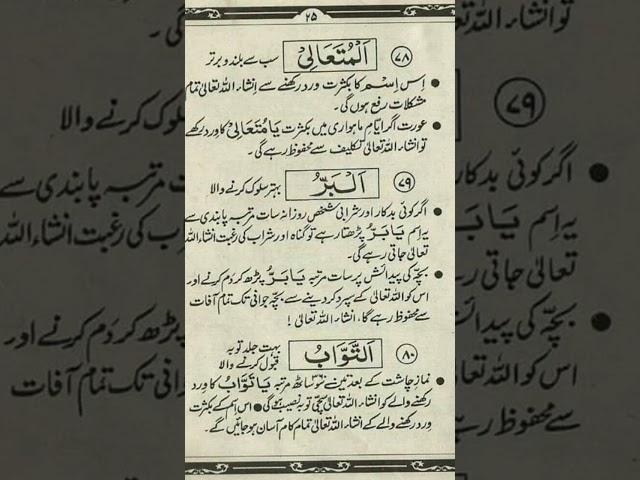 ۲۵
۷۸ اَلْمُتَعَالِیْ سب سے بلند و برتر
● اِس اِسْم کا بکثرت ورد رکھنے سے اِنشاء اللہ تعالیٰ تمام
مشکلات رفع ہوں گی۔
● عورت اگر ایّامِ ماہواری میں بکثرت یَا مُتَعَالِیْ کا ورد رکھے
تو انشاء اللہ تعالیٰ تکلیف سے محفوظ رہے گی۔
۷۹ اَلْبَرُّ بہتر سلوک کرنے والا
● اگر کوئی بدکار اور شرابی شخص روزانہ سات مرتبہ پابندی سے
یہ اِسم یَا بَرُّ پڑھتا رہے تو گناہ اور شراب کی رغبت انشاء اللہ
تعالیٰ جاتی رہے گی۔
● بچّہ کی پیدائش پر سات مرتبہ یَا بَرُّ پڑھ کر دَم کرنے اور
اس کو اللہ تعالیٰ کے سپرد کر دینے سے بچّہ جوانی تک تمام آفات
سے محفوظ رہے گا، انشاء اللہ تعالیٰ!
۸۰ اَلتَّوَّابُ بہت جلد توبہ
قبول کرنے والا
● نمازِ چاشت کے بعد تین سَو ساٹھ مرتبہ یَا تَوَّابُ کا ورد
رکھنے والے کو انشاء اللہ تعالیٰ سچّی توبہ نصیب ہوگی ● اس اسم کے بکثرت
ورد رکھنے والے کے انشاء اللہ تعالیٰ تمام کام آسان ہو جائیں گے۔
تو انشاء اللہ تعالیٰ
۷۹
سلوک کرنے والا
● اگر کوئی بدکار
مرتبہ پابندی سے
یہ اِسم یَا بَرُّ
کی رغبت انشاء اللہ
تعالیٰ جاتی رہے
● بچّہ کی پیدائش
پڑھ کر دَم کرنے اور
اس کو اللہ تعالیٰ
تک تمام آفات
سے محفوظ رہے